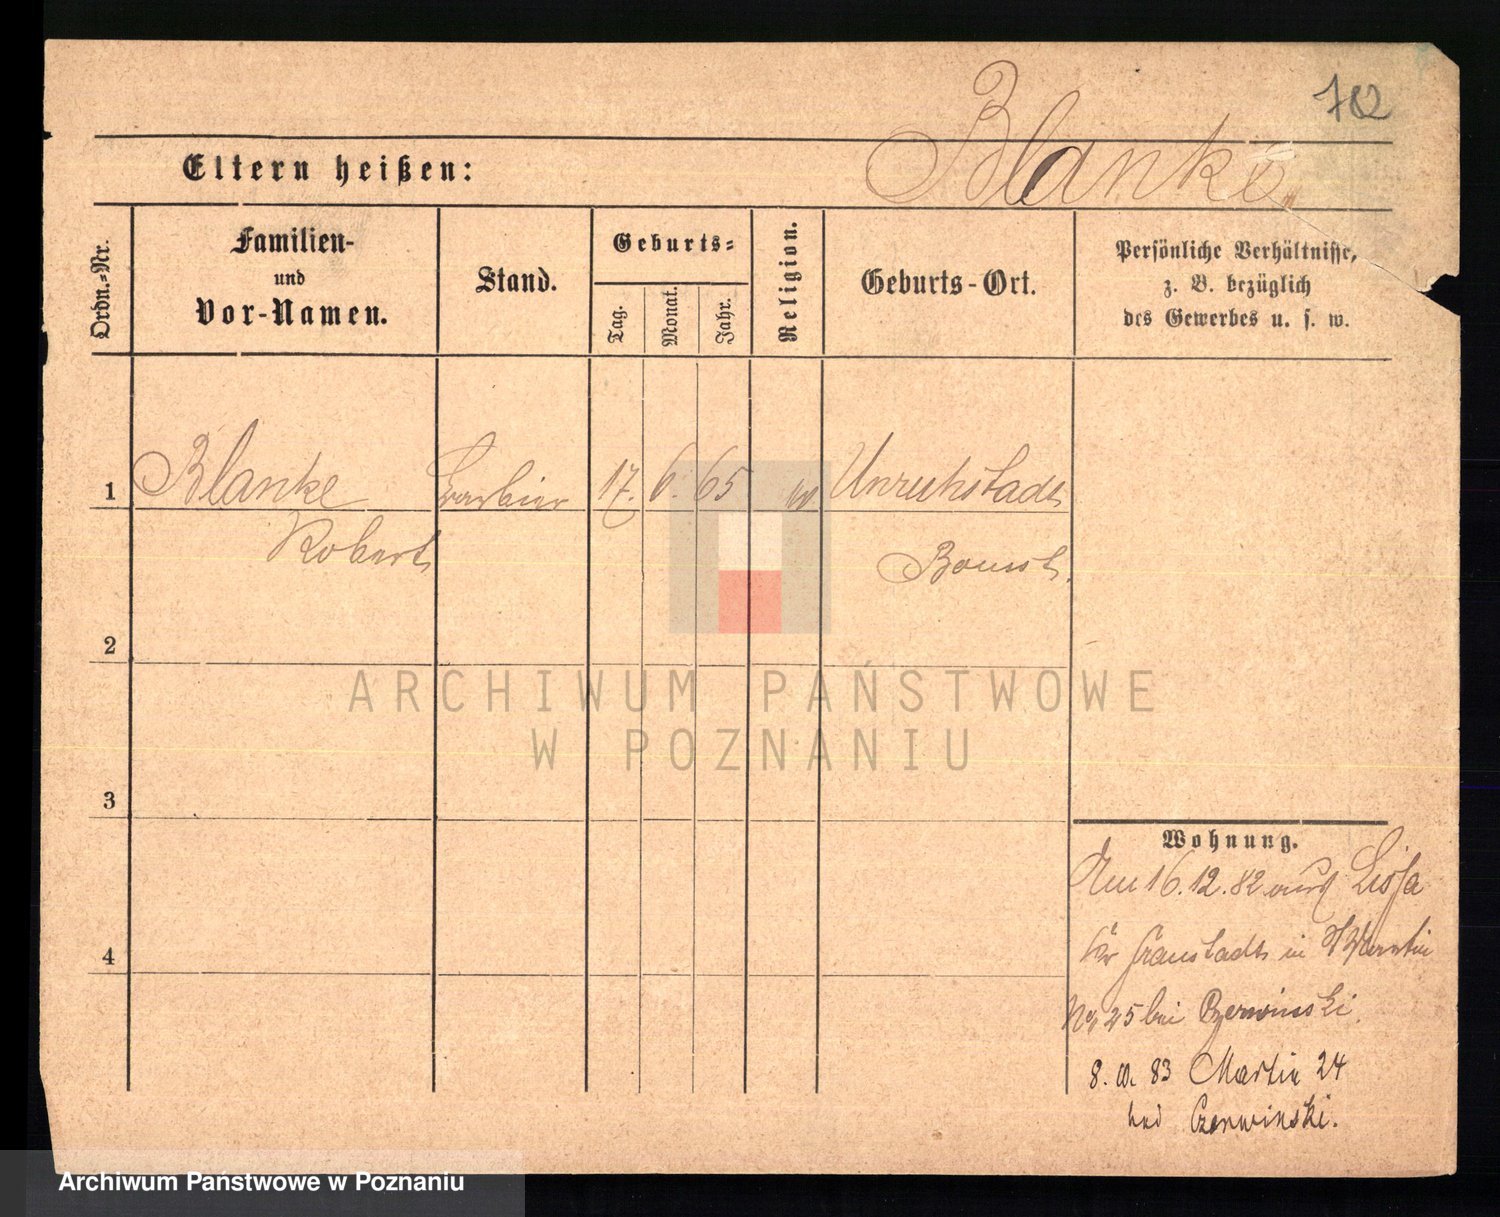 702
Blanke
Eltern heißen:
Ordn.-Nr.
Familien-
und
Vor-Namen.
Stand.
Geburts-
Tag.
Monat.
Jahr.
Religion.
Geburts-Ort.
Persönliche Verhältnisse,
z. B. bezüglich
des Gewerbes u. s. w.
1 Blanke Barbier 17. 6. 65 Unruhstadt
Robert Bomst.
2
ARCHIWUM PAŃSTWOWE
W POZNANIU
3
4
Wohnung.
Am 16.12.82 aus Lissa
Kr Fraustadt in St Martin
No 25 bei Czerwinski.
8. 83 Martin 24
bei Czerwinski.
Archiwum Państwowe w Poznaniu